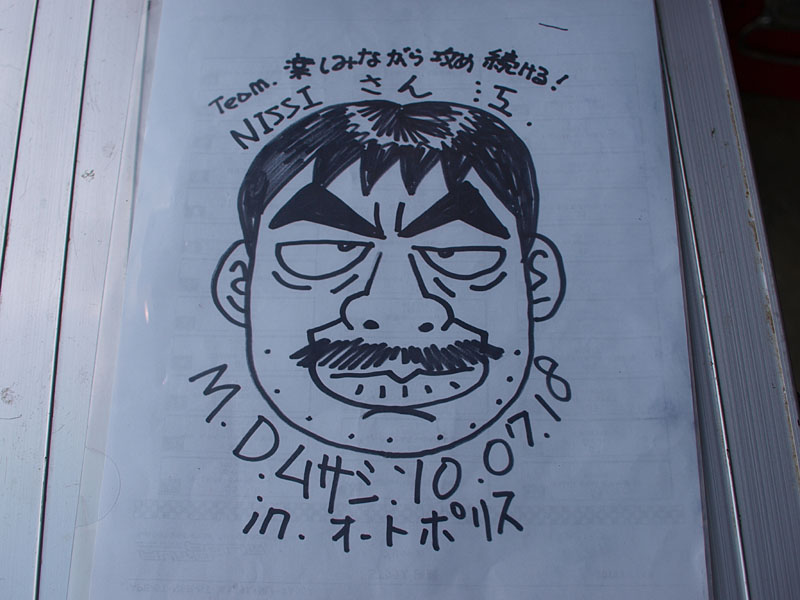 Team. 楽しみながら攻め続ける!
NISSI さん江.
M.D.ムサシ 10.07.18
in. オートポリス